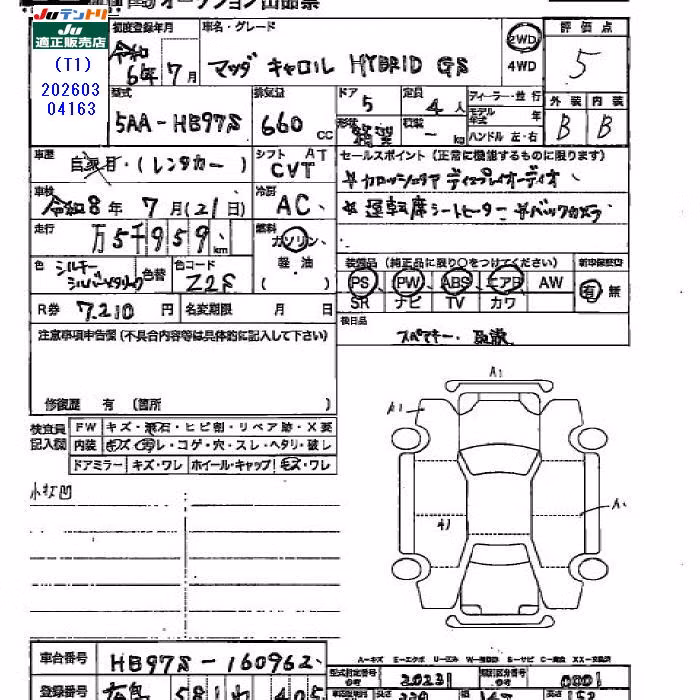 オークション出品票
Juテントリ
Ju
適正販売店
(T1)
202603
04163
初度登録年月
令和
6年7月
車名・グレード
マツダ キャロル HYBRID GS
2WD
4WD
評価点
5
型式
5AA-HB97S
排気量
660 CC
ドア
5
定員
4人
形状
積載
- kg
ディーラー・並行
モデル年式 年
ハンドル 左・右
外装 内装
B B
車歴
自家用・(レンタカー)
シフト AT
CVT
セールスポイント(正常に機能するものに限ります)
車検
令和8年7月(21日)
冷房
AC
運転席シートヒーター
バックカメラ
走行
万5千959km
燃料
ガソリン
軽油
( )
色
シルキーシルバーメタリック
色替
色コード
Z2S
装備品(純正品に限り○をつけてください)
新車保証書
PS PW ABS エアB AW
SR ナビ TV カワ
有 無
R券 7,210円
名変期限 月 日
後日品
スペアキー・取説
注意事項申告欄(不具合内容等は具体的に記入して下さい)
修復歴 有 (箇所 )
検査員記入欄
FW キズ・飛石・ヒビ割・リペア跡・X要
内装 キズ・汚レ・コゲ・穴・スレ・ヘタリ・破レ
ドアミラー キズ・ワレ ホイール・キャップ キズ・ワレ
小打凹
A1
A1
A1
A1
A-キズ E-エクボ U-凹み W-補修跡 S-サビ C-腐食 XX-交換済
車台番号
HB97S-160962
型式指定番号
20231
類別区分番号
0001
登録番号
581 わ 405